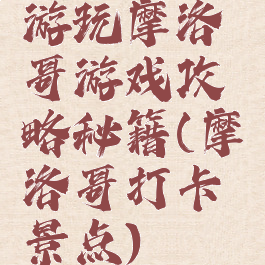 游玩摩洛
哥游戏攻
略秘籍(摩
洛哥打卡
景点)